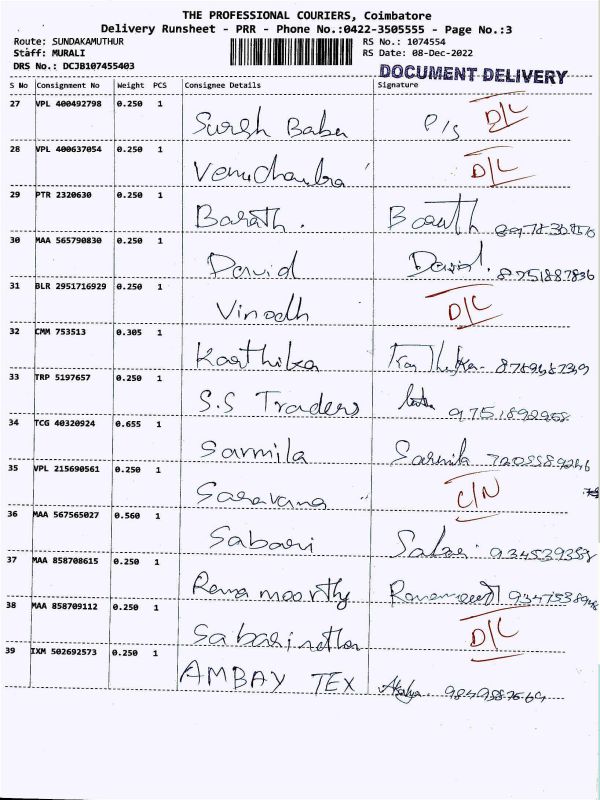 THE PROFESSIONAL COURIERS, Coimbatore
Delivery Runsheet - PRR - Phone No.:0422-3505555 - Page No.:3
Route: SUNDAKAMUTHUR RS No.: 1074554
Staff: MURALI RS Date: 08-Dec-2022
DRS No.: DCJB107455403 DOCUMENT DELIVERY
S No Consignment No Weight PCS Consignee Details Signature
27 VPL 400492798 0.250 1 Suresh Babu P/S D/L
28 VPL 400637054 0.250 1 Venuchandra D/L
29 PTR 2320630 0.250 1 Barath.
30 MAA 565790830 0.250 1 David David. 8751887836
31 BLR 2951716929 0.250 1 Vinodh D/L
32 CMM 753513 0.305 1 Karthika
33 TRP 5197657 0.250 1 S.S Traders
34 TCG 40320924 0.655 1 Sarmila Sarmila
35 VPL 215690561 0.250 1 Saravana " C/N
36 MAA 567565027 0.560 1 Sabari
37 MAA 858708615 0.250 1 Rama moorthy
38 MAA 858709112 0.250 1 Sabarinathan D/L
39 IXM 502692573 0.250 1 AMBAY TEX